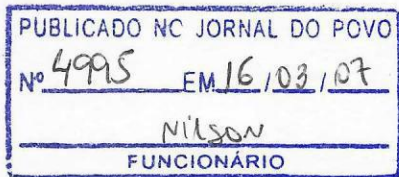 PUBLICADO NO JORNAL DO POVO
Nº 4995 EM 16 / 03 / 07
Nilson
FUNCIONÁRIO